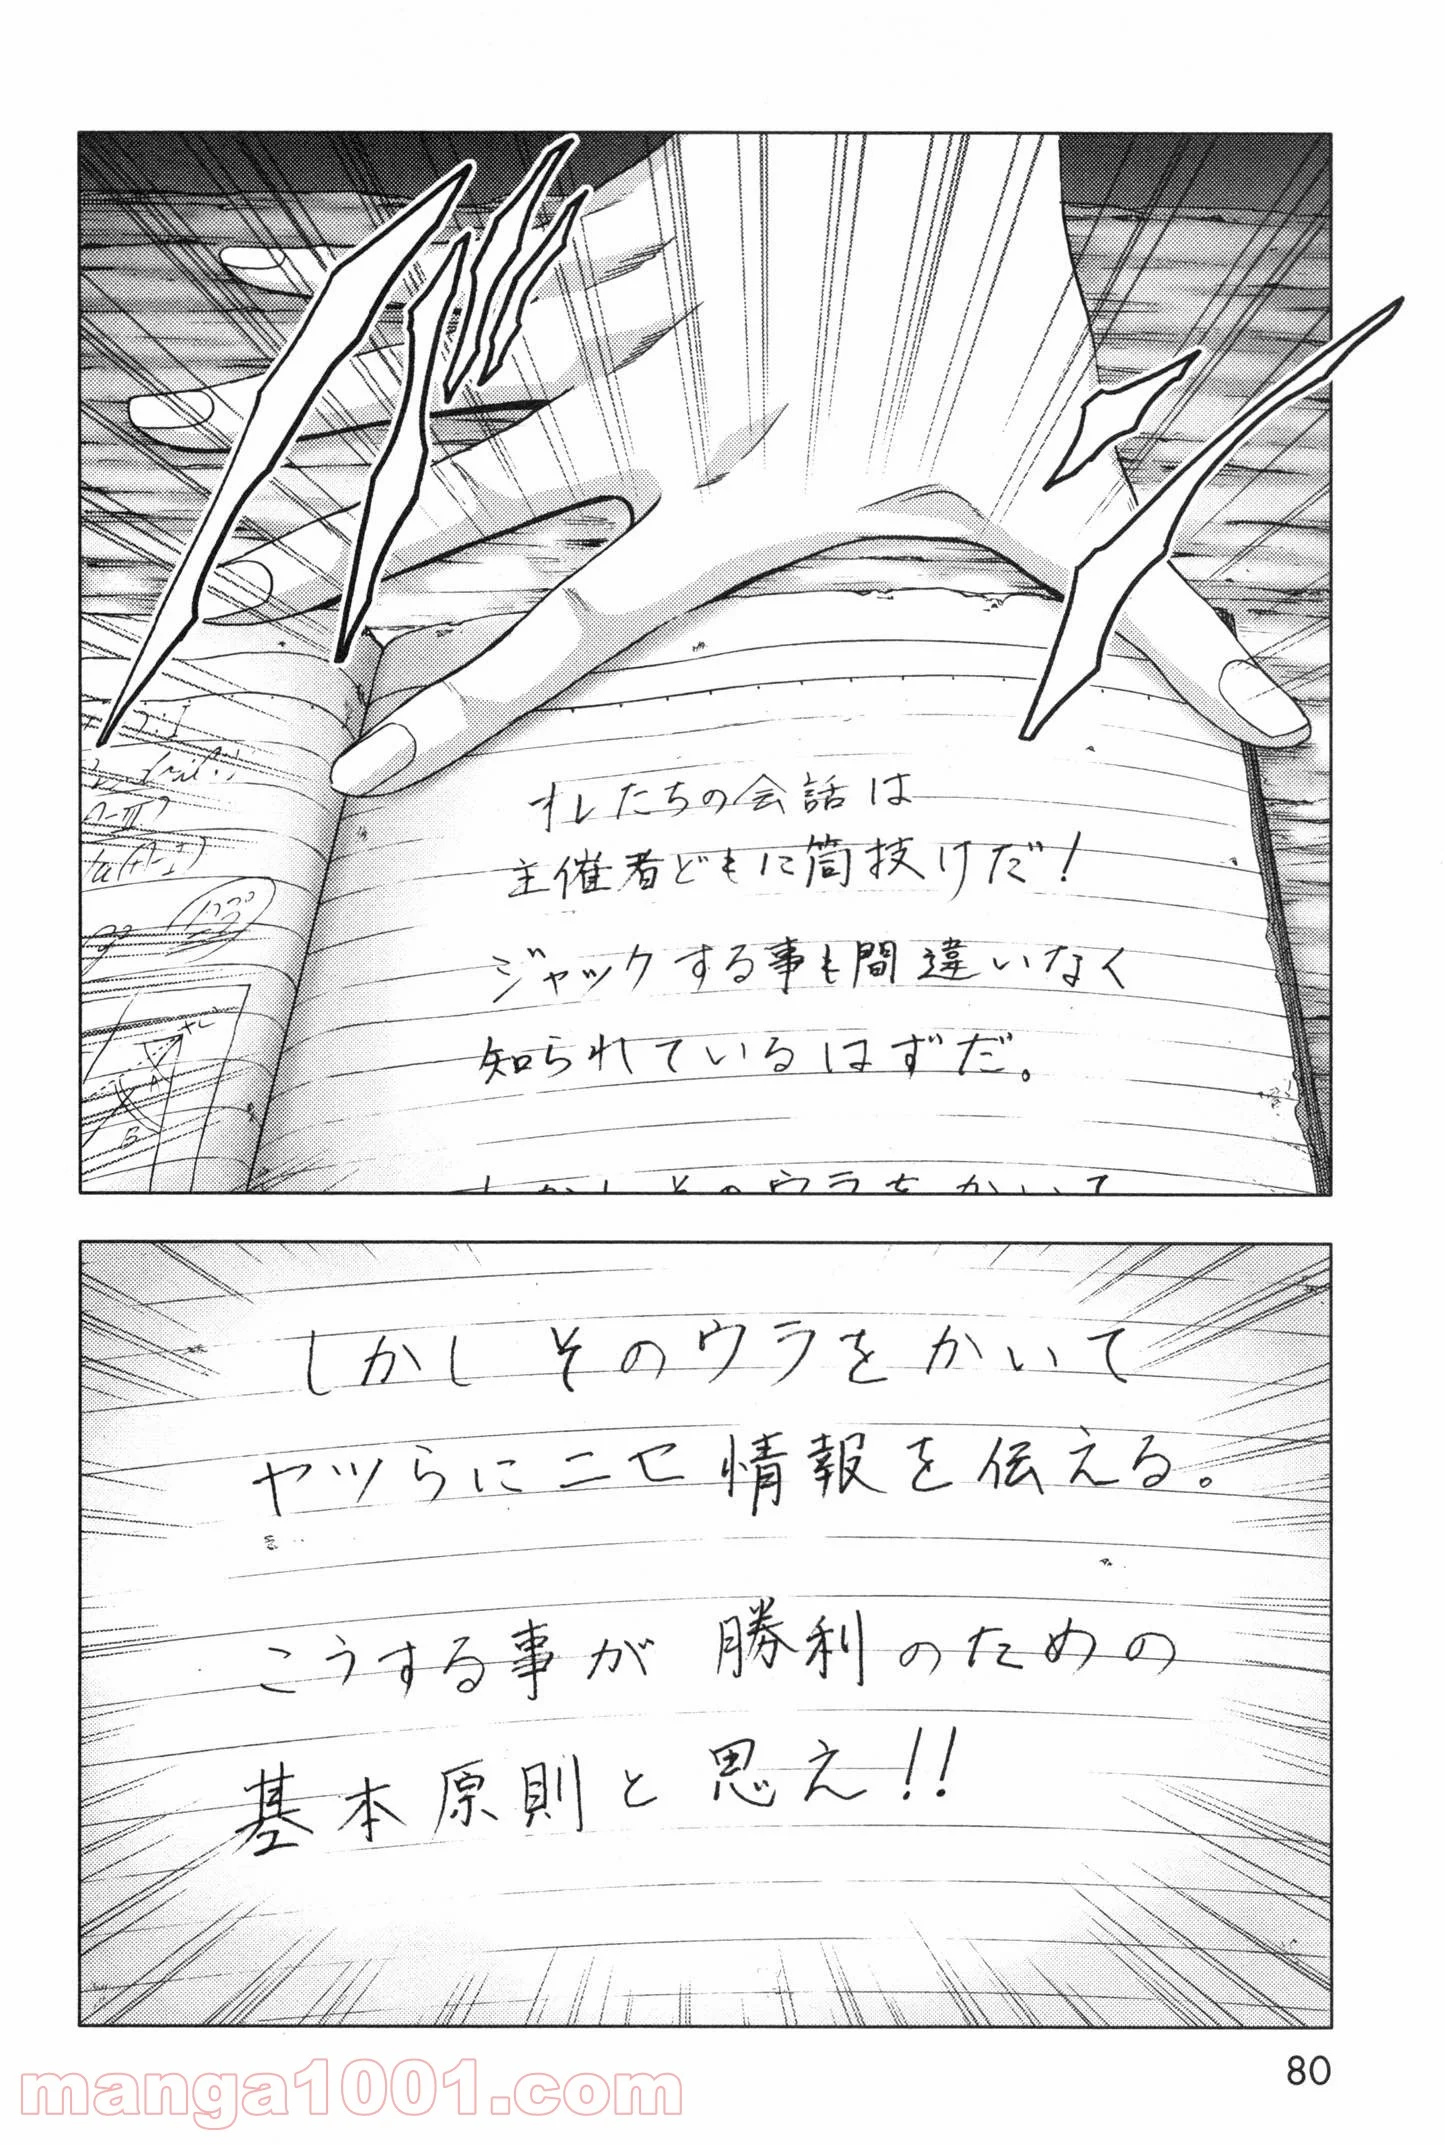 オレたちの会話は
主催者どもに筒抜けだ!
ジャックする事も間違いなく
知られているはずだ。
しかしそのウラをかいて
しかし そのウラをかいて
ヤツらにニセ情報を伝える。
こうする事が 勝利のための
基本原則と思え!!
80
manga1001.com